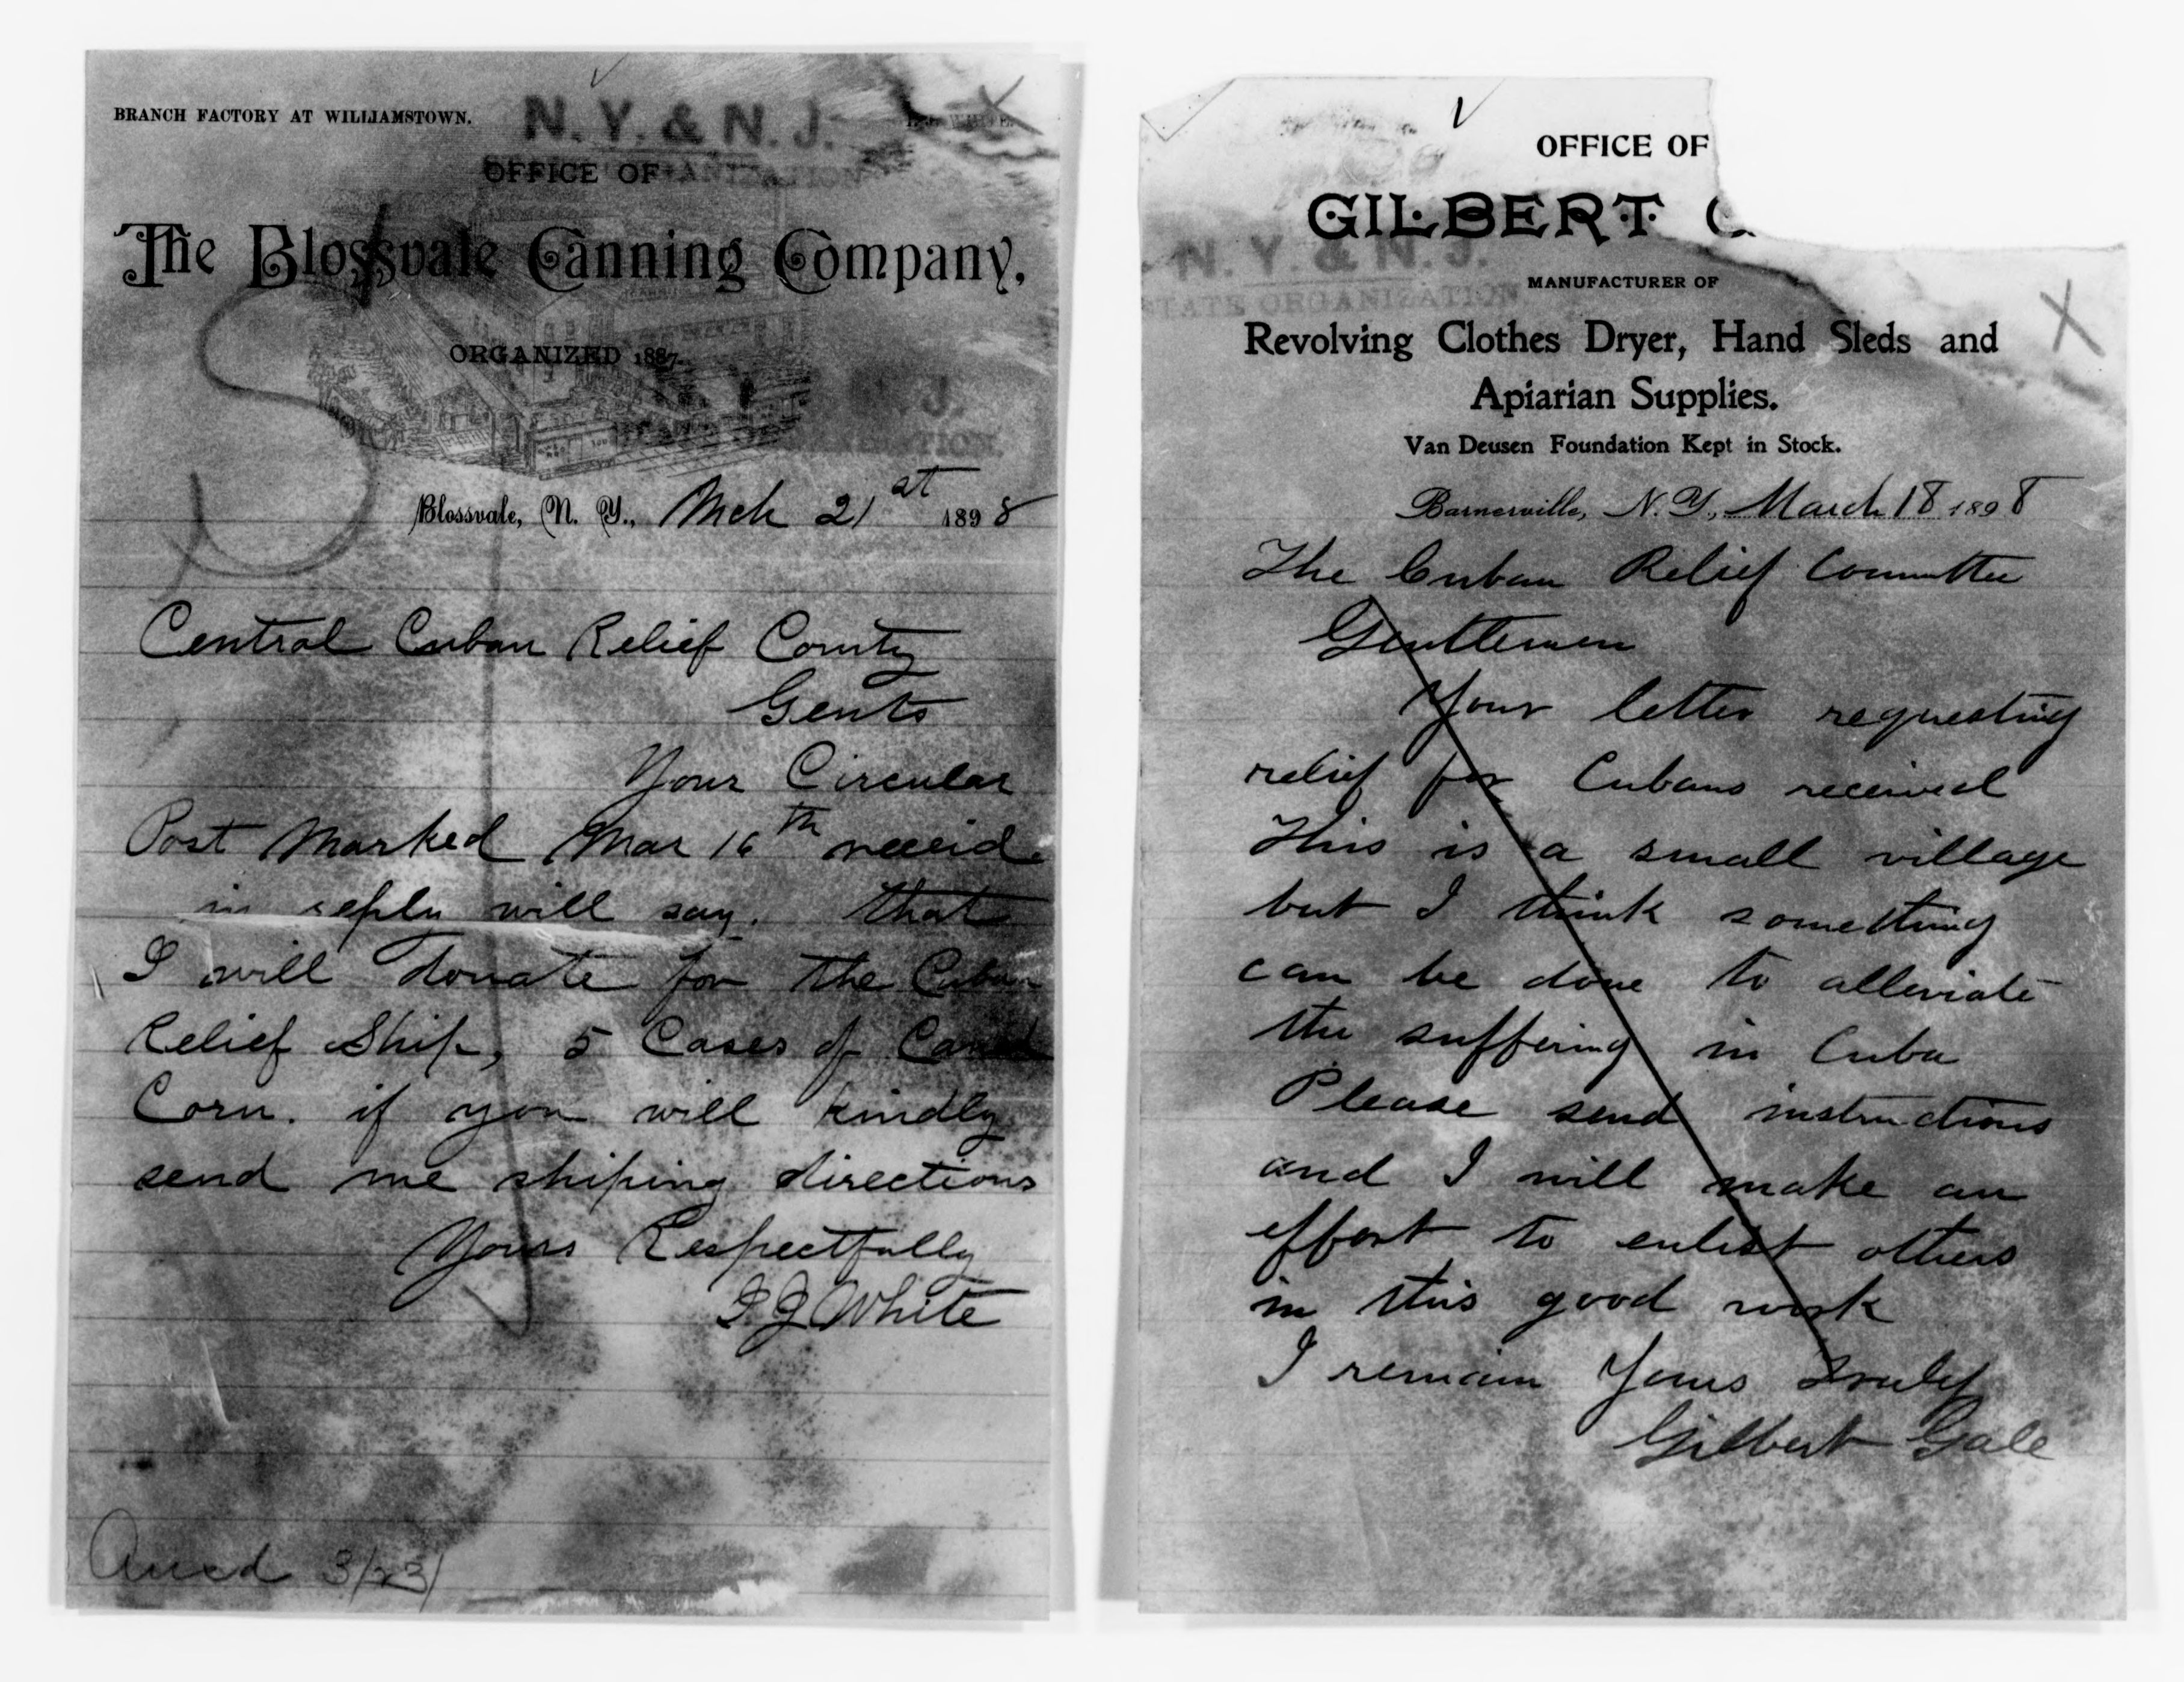 BRANCH FACTORY AT WILLIAMSTOWN.
N. Y. & N. J.
OFFICE OF
The Blossvale Canning Company,
ORGANIZED 1887.
J.
Blossvale, N. Y., Mch 21st 1898
Central Cuban Relief Comty
Gents
Your Circular
Post Marked Mar 16th receid
in reply will say. that
I will donate for the Cuban
Relief Ship, 5 Cases of Cand
Corn. if you will kindly
send me shiping directions
Yours Respectfully
White
Ansd 3/23/
OFFICE OF
GILBERT G
N. Y. & N. J.
STATE ORGANIZATION
MANUFACTURER OF
Revolving Clothes Dryer, Hand Sleds and
Apiarian Supplies.
Van Deusen Foundation Kept in Stock.
Barnerville, N. Y., March 18 1898
The Cuban Relief Committee
Gentlemen
Your letter requesting
relief for Cubans received
This is a small village
but I think something
can be done to alleviate
the suffering in Cuba
Please send instructions
and I will make an
effort to enlist others
in this good work
I remain Yours Truly
Gilbert Gale